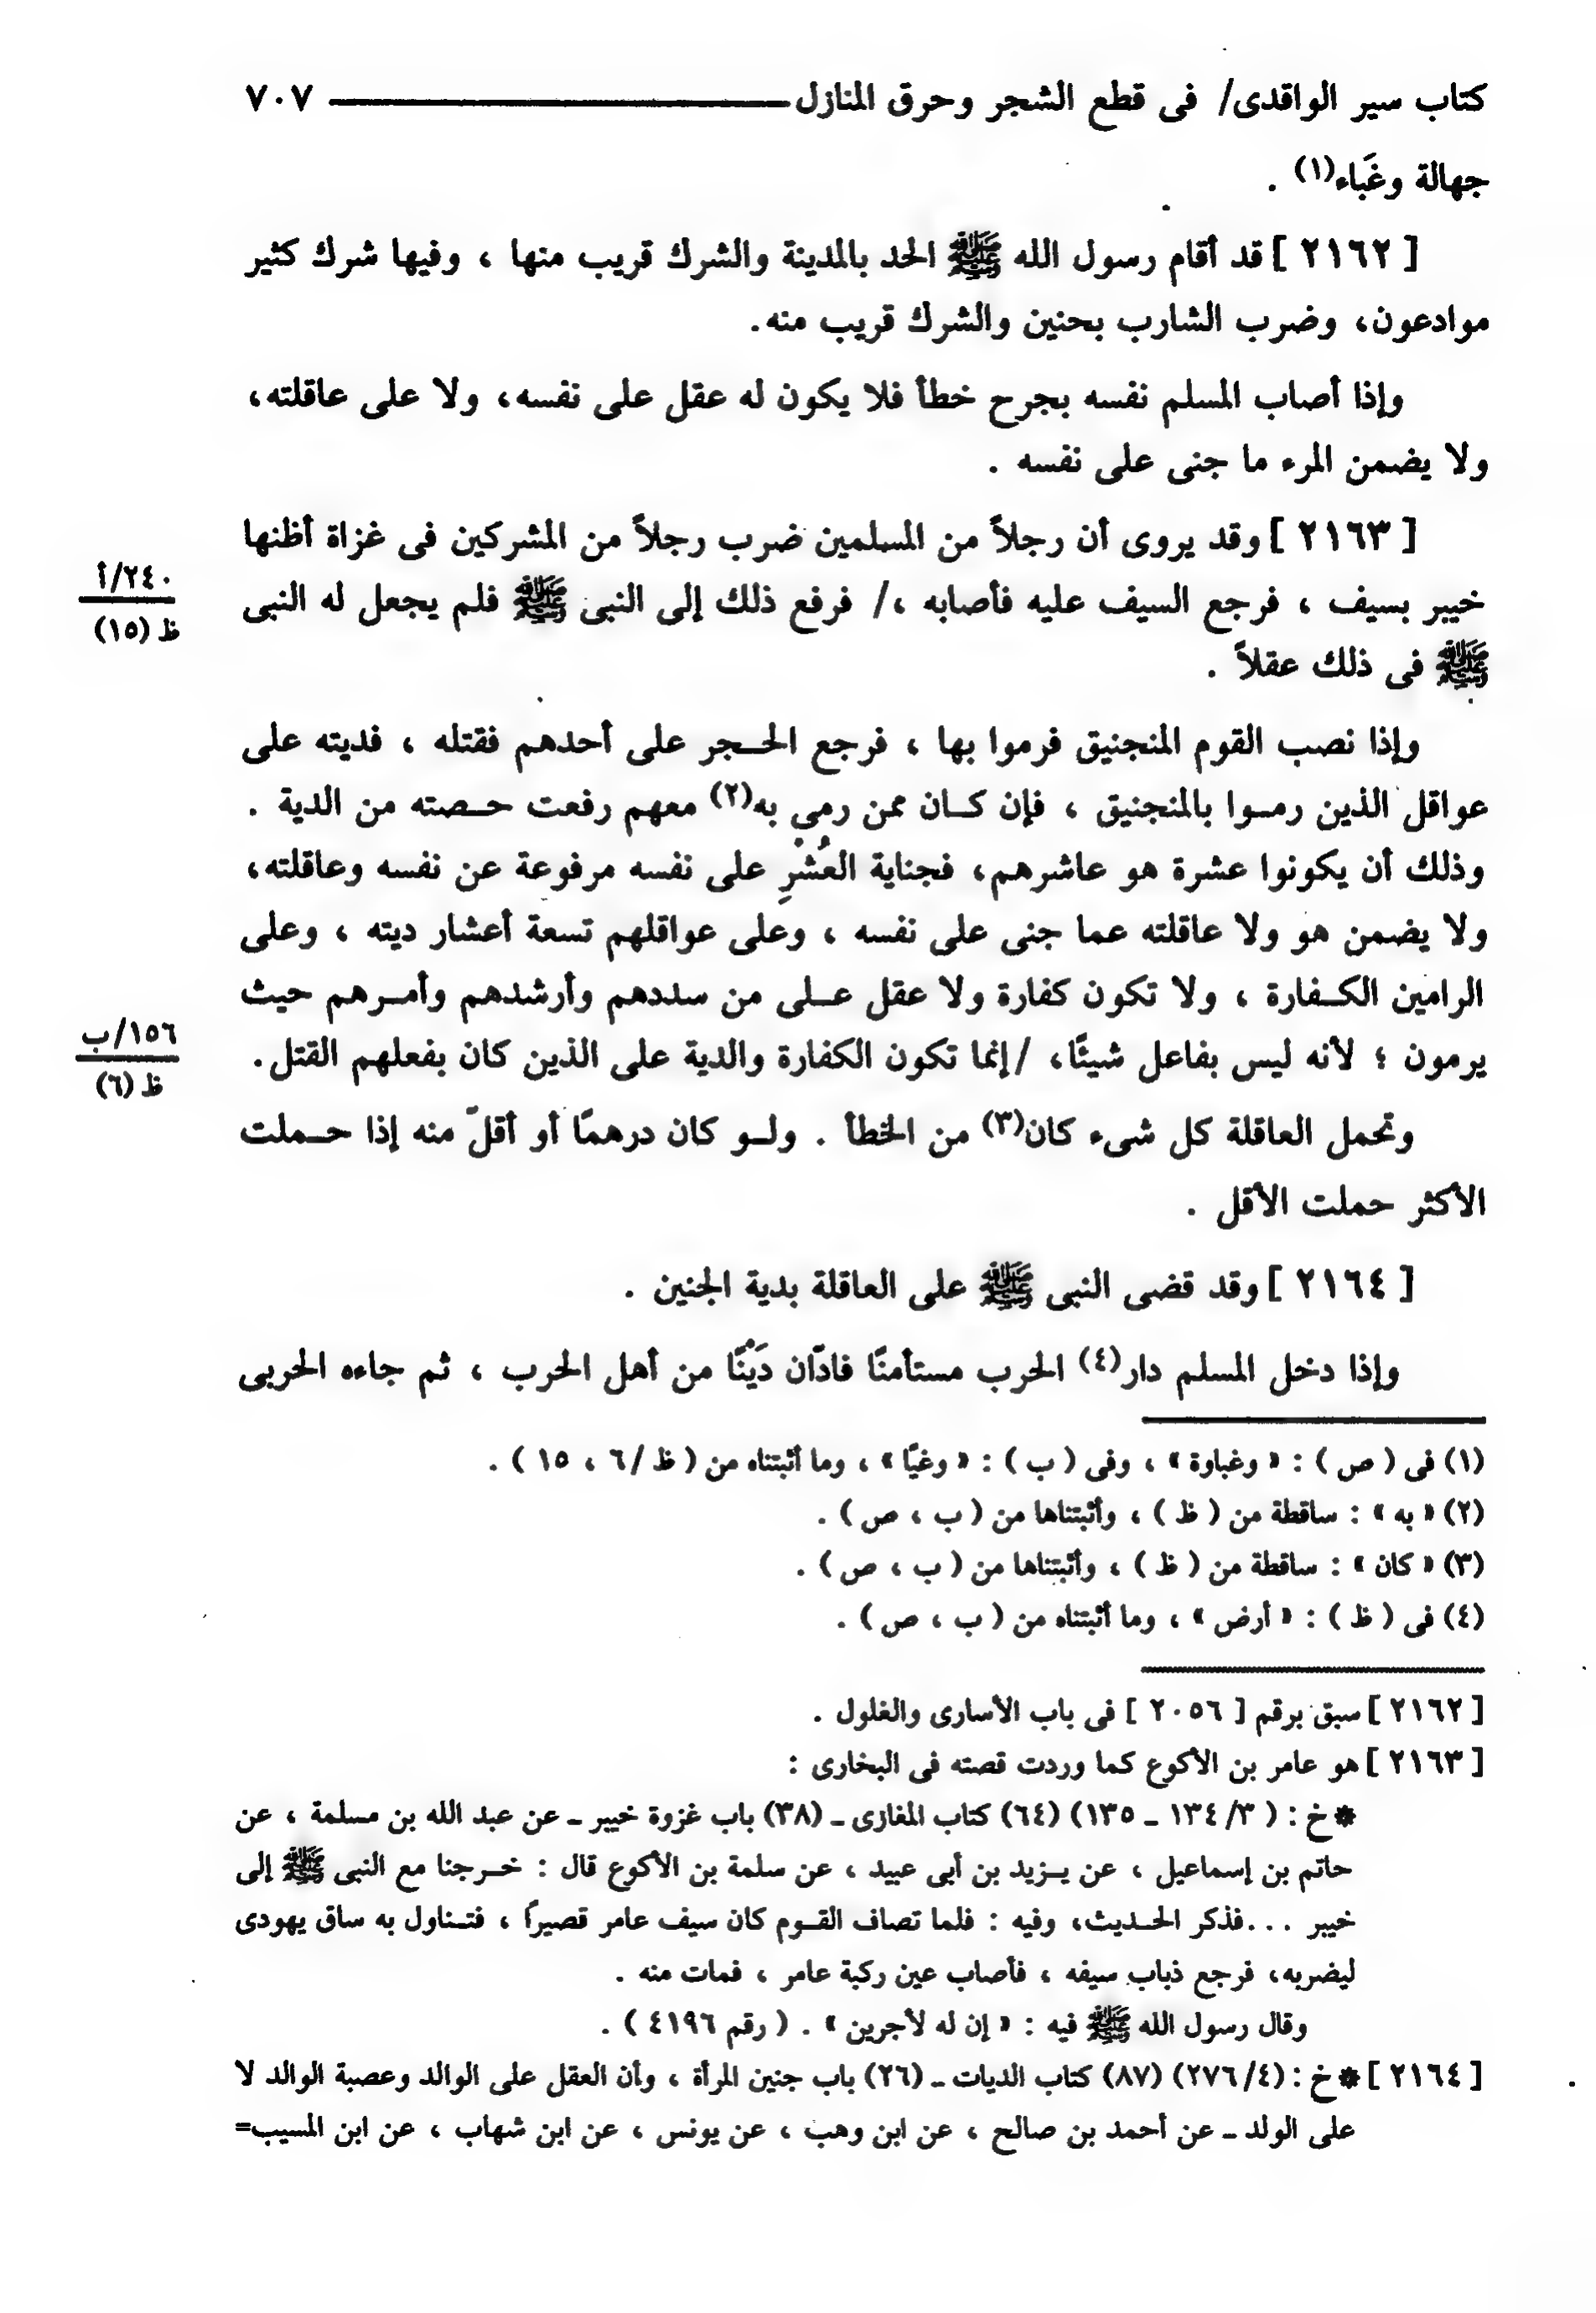 كتاب سير الواقدى/ فى قطع الشجر وحرق المنازل ٧٠٧
جهالة وغَباء(١) .
[ ٢١٦٢ ] قد أقام رسول الله ﷺ الحد بالمدينة والشرك قريب منها ، وفيها شرك كثير
موادعون، وضرب الشارب بحنين والشرك قريب منه.
وإذا أصاب المسلم نفسه بجرح خطأ فلا يكون له عقل على نفسه، ولا على عاقلته،
ولا يضمن المرء ما جنى على نفسه .
[ ٢١٦٣ ] وقد يروى أن رجلاً من المسلمين ضرب رجلاً من المشركين فى غزاة أظنها
٢٤٠/أ
ظ (١٥)
خيبر بسيف ، فرجع السيف عليه فأصابه ،/ فرفع ذلك إلى النبى ﷺ فلم يجعل له النبى
ﷺ فى ذلك عقلاً .
وإذا نصب القوم المنجنيق فرموا بها ، فرجع الحجر على أحدهم فقتله ، فديته على
عواقل الذين رموا بالمنجنيق ، فإن كان ممن رمى به(٢) معهم رفعت حصته من الدية .
وذلك أن يكونوا عشرة هو عاشرهم، فجناية العُشْرِ على نفسه مرفوعة عن نفسه وعاقلته،
ولا يضمن هو ولا عاقلته عما جنى على نفسه ، وعلى عواقلهم تسعة أعشار ديته ، وعلى
الرامين الكفارة ، ولا تكون كفارة ولا عقل على من سددهم وأرشدهم وأمرهم حيث
١٥٦/ب
ظ (٦)
يرمون ؛ لأنه ليس بفاعل شيئًا، /إنما تكون الكفارة والدية على الذين كان بفعلهم القتل.
وتحمل العاقلة كل شىء كان(٣) من الخطأ . ولو كان درهمًا أو أقلّ منه إذا حملت
الأكثر حملت الأقل .
[ ٢١٦٤ ] وقد قضى النبى ﷺ على العاقلة بدية الجنين .
وإذا دخل المسلم دار(٤) الحرب مستأمنًا فادّان دَيْنًا من أهل الحرب ، ثم جاءه الحربى
(١) فى ( ص ) : « وغباوة » ، وفى ( ب ) : « وغيًا » ، وما أثبتناه من ( ظ /٦ ، ١٥ ) .
(٢) « به » : ساقطة من ( ظ ) ، وأثبتناها من ( ب ، ص ) .
(٣) « كان » : ساقطة من ( ظ ) ، وأثبتناها من ( ب ، ص ) .
(٤) فى ( ظ ) : « أرض » ، وما أثبتناه من ( ب ، ص ) .
[ ٢١٦٢ ] سبق برقم [ ٢٠٥٦ ] فى باب الأسارى والغلول .
[ ٢١٦٣ ] هو عامر بن الأكوع كما وردت قصته فى البخارى :
* خ : ( ٣/ ١٣٤ - ١٣٥) (٦٤) كتاب المغازى - (٣٨) باب غزوة خيبر - عن عبد الله بن مسلمة ، عن
حاتم بن إسماعيل ، عن يزيد بن أبى عبيد ، عن سلمة بن الأكوع قال : خرجنا مع النبى ﷺ إلى
خيبر ...فذكر الحديث، وفيه : فلما تصاف القوم كان سيف عامر قصيرًا ، فتناول به ساق يهودى
ليضربه، فرجع ذباب سيفه ، فأصاب عين ركبة عامر ، فمات منه .
وقال رسول الله ﷺ فيه : « إن له لأجرين » . ( رقم ٤١٩٦ ) .
[ ٢١٦٤ ] * خ : (٤/ ٢٧٦) (٨٧) كتاب الديات - (٢٦) باب جنين المرأة ، وأن العقل على الوالد وعصبة الوالد لا
على الولد - عن أحمد بن صالح ، عن ابن وهب ، عن يونس ، عن ابن شهاب ، عن ابن المسيب=